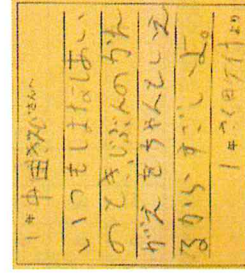 1年中田さんへ
いつもはなしあい
のとき、じぶんのかん
がえをちゃんといえ
るから すごいよ。
1年 より